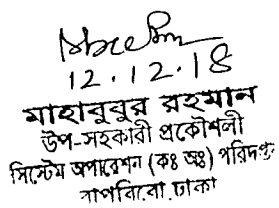 12.12.18
মাহাবুবুর রহমান
উপ-সহকারী প্রকৌশলী
সিস্টেম অপারেশন (কঃ অঃ) পরিদপ্তর
বাপবিবো, ঢাকা